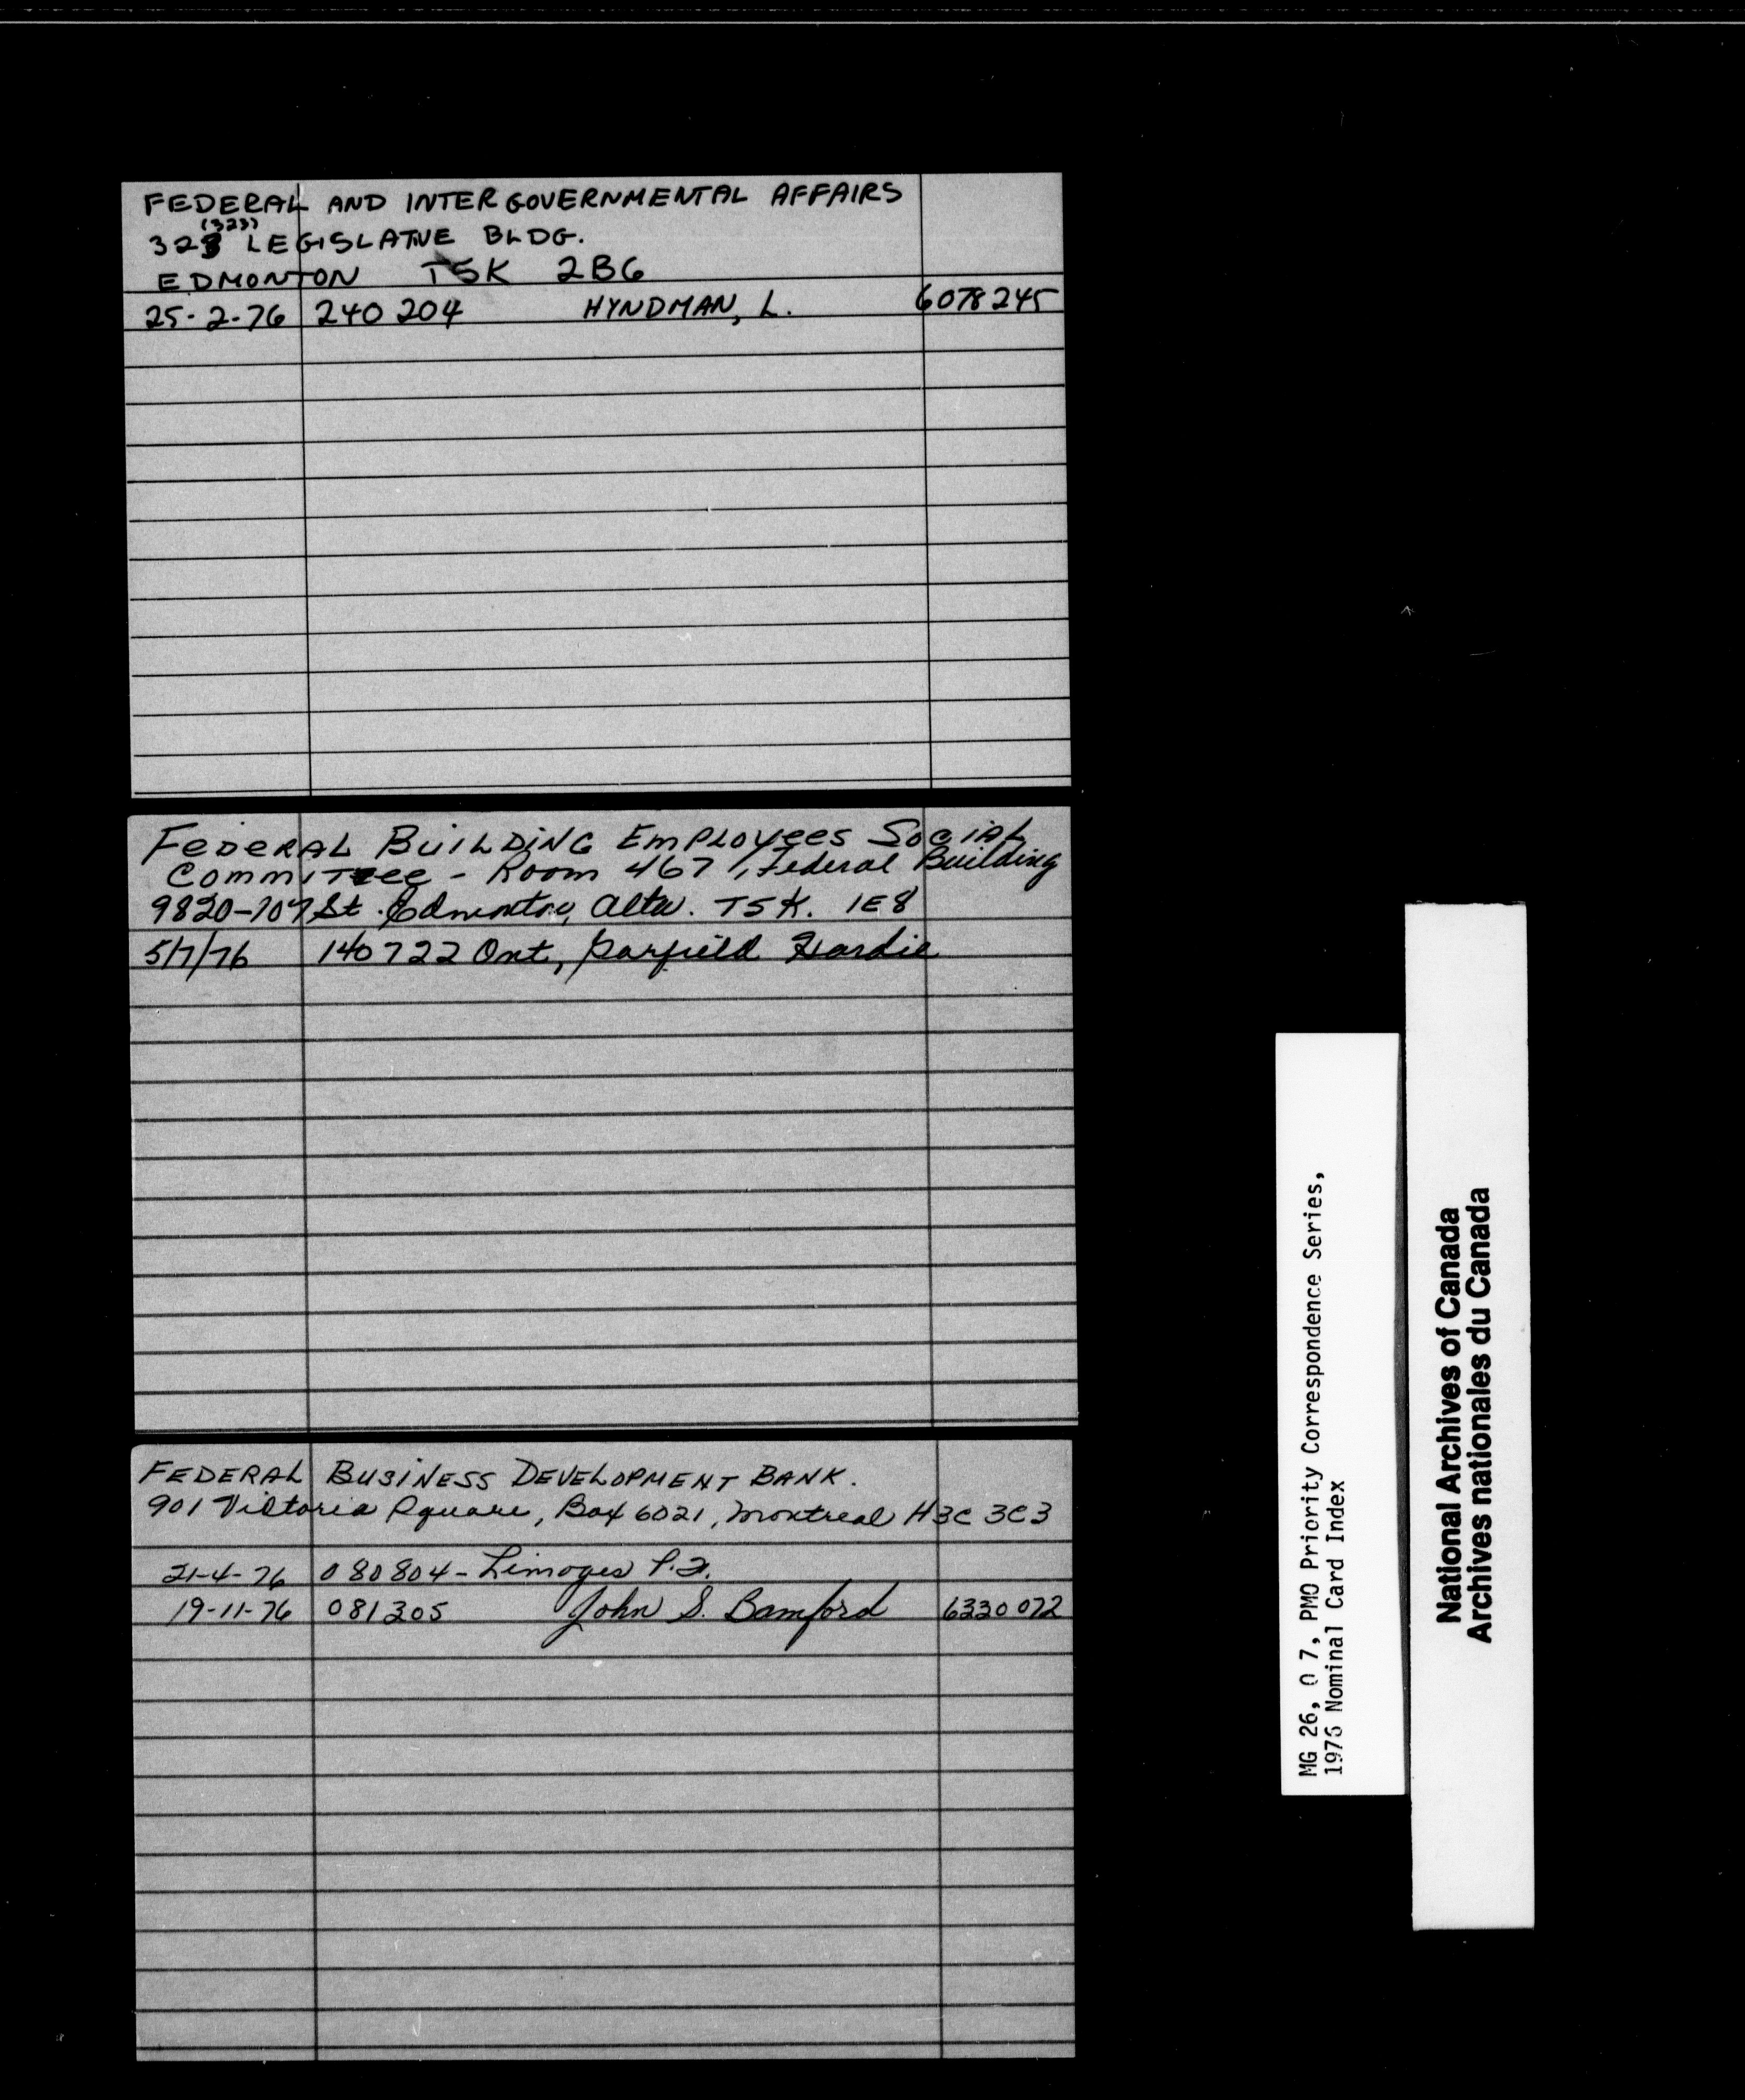 FEDERAL AND INTERGOVERNMENTAL AFFAIRS
(323)
323 LEGISLATIVE BLDG.
EDMONTON T5K 2B6
25-2-76 240 204 HYNDMAN, L. 6078245
FEDERAL BUILDING EMPLOYEES SOCIAL
COMMITTEE - Room 467, Federal Building
9820-107 St. Edmonton, Alta. T5K. 1E8
5/7/76 140722 Ont, Garfield Hardie
FEDERAL BUSINESS DEVELOPMENT BANK.
901 Victoria Square, Box 6021, Montreal H3C 3C3
21-4-76 080804 - Limoges
19-11-76 081305 John S. Bamford 6330072
MG 26, O 7, PMO Priority Correspondence Series,
1976 Nominal Card Index
National Archives of Canada
Archives nationales du Canada